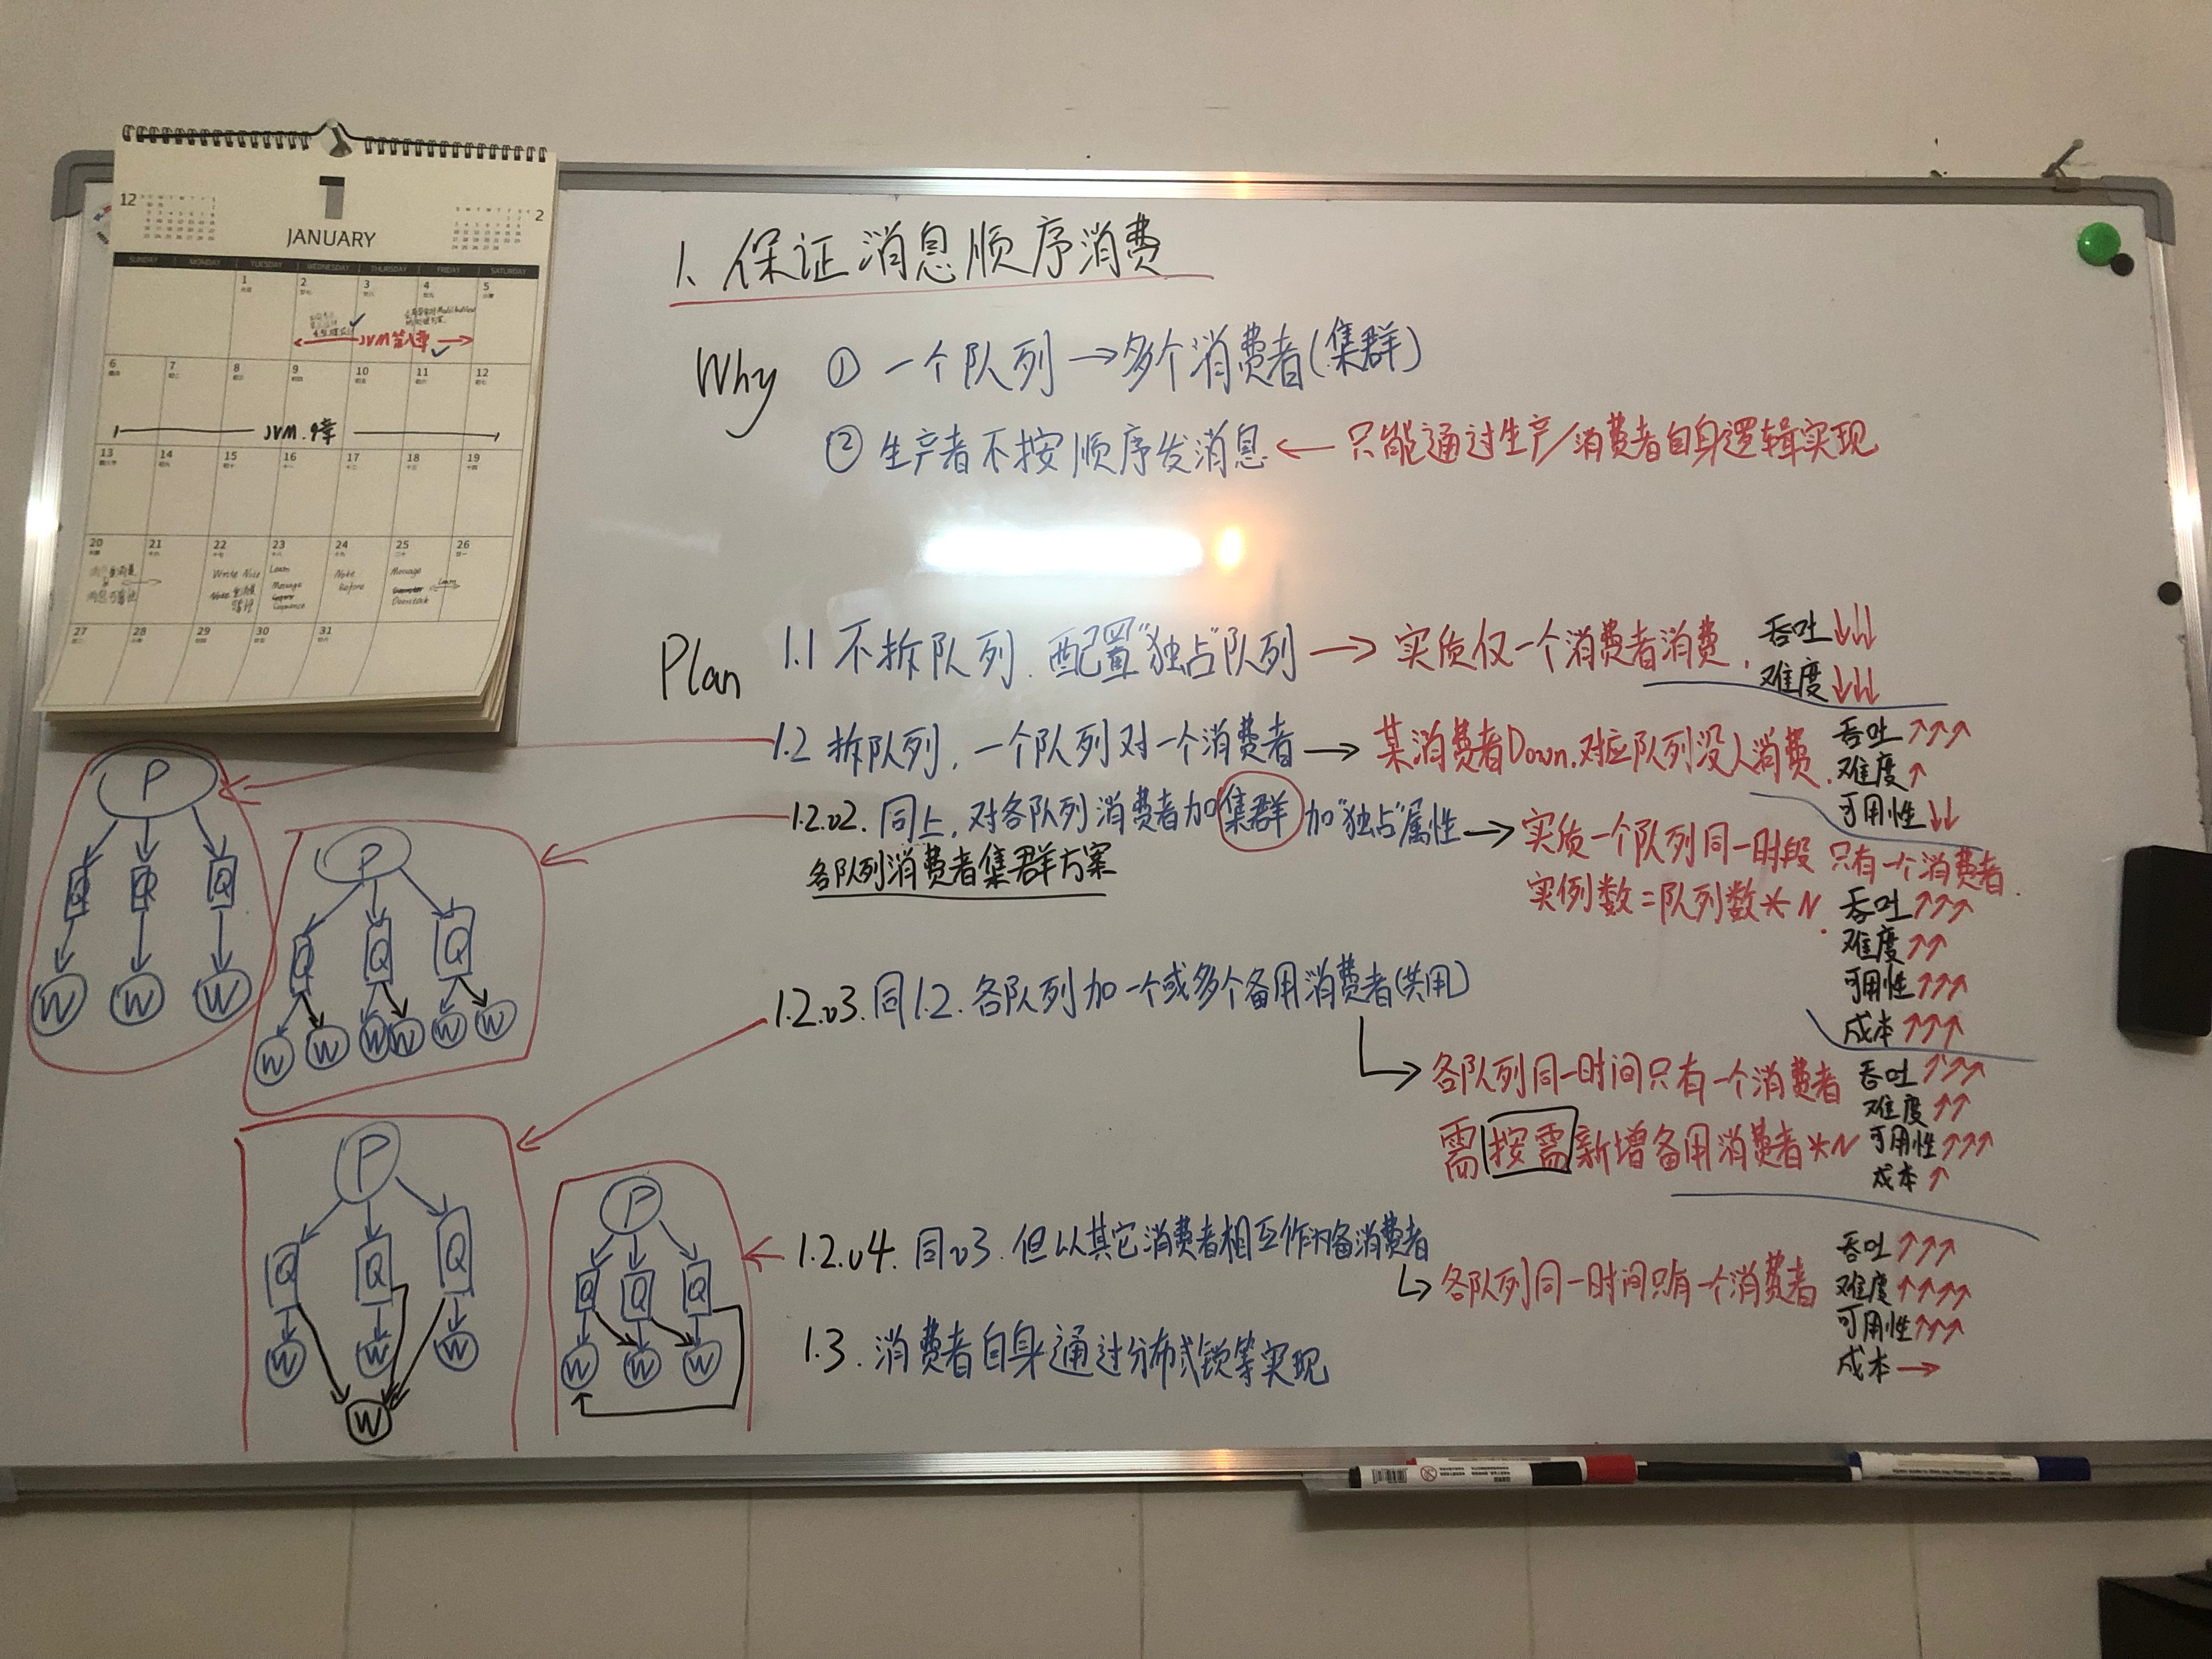 12
1
JANUARY
2
SUNDAY MONDAY TUESDAY WEDNESDAY THURSDAY FRIDAY SATURDAY
1 2 3 4 5
JVM第八章
6 7 8 9 10 11 12
JVM.9章
13 14 15 16 17 18 19
20 21 22 23 24 25 26
Write Nice Learn Note Message
Note Message Before
Sequence
27 28 29 30 31
1、保证消息顺序消费
Why ① 一个队列→多个消费者(集群)
② 生产者不按顺序发消息 ← 只能通过生产/消费者自身逻辑实现
Plan
1.1 不拆队列.配置"独占"队列 → 实质仅一个消费者消费. 吞吐↓↓↓
难度↓↓↓
1.2 拆队列.一个队列对一个消费者 → 某消费者Down.对应队列没人消费. 吞吐↑↑↑
难度↑
可用性↓↓
1.2.v2.同上.对各队列消费者加集群加"独占"属性 → 实质一个队列同一时段只有一个消费者.
各队列消费者集群方案
实例数=队列数*N.
吞吐↑↑↑
难度↑↑
可用性↑↑↑
成本↑↑↑
1.2.v3.同1.2.各队列加一个或多个备用消费者(共用)
→各队列同一时间只有一个消费者
需按需新增备用消费者*N
吞吐↑↑↑
难度↑↑
可用性↑↑↑
成本↑
1.2.v4.同v3.但以其它消费者相互作为备消费者
→各队列同一时间只有一个消费者
吞吐↑↑↑
难度↑↑↑↑
可用性↑↑↑
成本→
1.3.消费者自身通过分布式锁等实现
P
Q Q Q
W W W
P
Q Q Q
W W W W W W
P
Q Q Q
W W W
W
P
Q Q Q
W W W